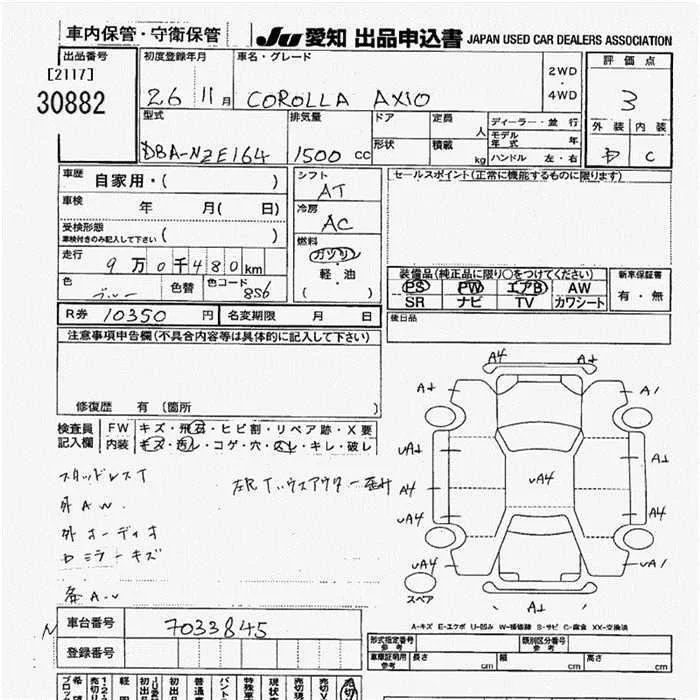 車内保管・守衛保管
JU 愛知 出品申込書 JAPAN USED CAR DEALERS ASSOCIATION
出品番号
[2117]
30882
初度登録年月
26 11月
車名・グレード
COROLLA AXIO
2WD
・
4WD
評価点
3
外装 内装
C
型式
DBA-NZE164
排気量
1500 cc
ドア
形状
定員
人
積載
kg
ディーラー・並行
モデル年式 年
ハンドル 左・右
車歴
自家用・( )
車検
年 月( 日)
受検形態
車検付きのみ記入して下さい
( )
走行
9万0千480km
色
ブルー
色替
色コード
8S6
シフト
AT
冷房
AC
燃料
ガソリン
軽・油
( )
セールスポイント(正常に機能するものに限ります)
装備品(純正品に限り○をつけてください)
PS PW エアB AW
SR ナビ TV カワシート
新車保証書
有・無
後日品
R券 10350 円
名変期限 月 日
注意事項申告欄(不具合内容等は具体的に記入して下さい)
修復歴 有 (箇所 )
検査員記入欄
FW キズ・飛石・ヒビ割・リペア跡・X要
内装 キズ・汚レ・コゲ・穴・スレ・キレ・破レ
スタッドレスT
外AW
外オーディオ
ロミラーキズ
A4
A1
A1
A1
A1
uA1
A4
uA4
uA4
uA4
A1
A4
uA1
A1
スペア
A-キズ E-エクボ U-凹み W-補修跡 S-サビ C-腐食 XX-交換済
車台番号
7033845
登録番号
形式指定番号
参考
類別区分番号
参考
車庫証明用
参考
長さ cm
幅 cm
高さ cm